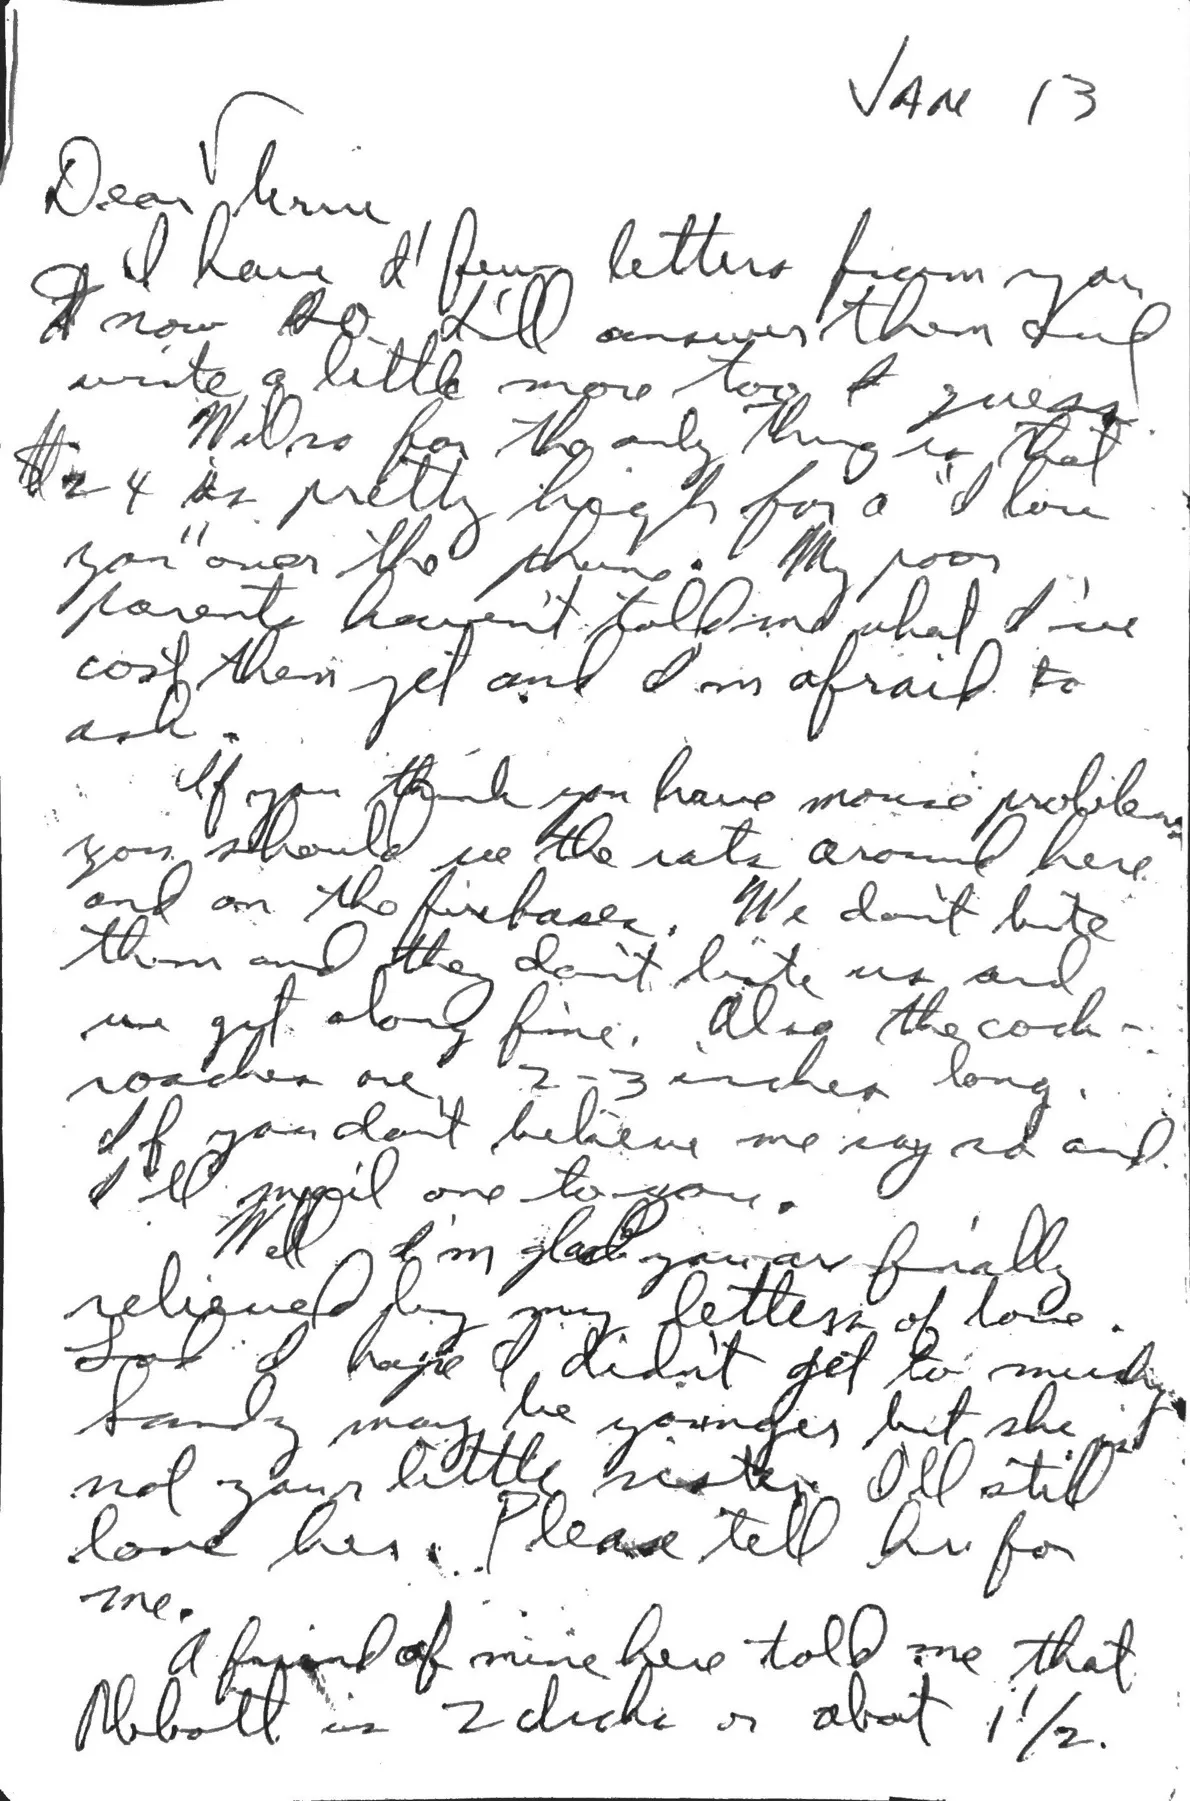 JAN 13
Dear Verne
I have a few letters from you
now so I'll answer them and
write a little more too I guess.
so far the only thing is that
$24 is pretty high for a "I love
you" over the phone. My poor
parents haven't told me what I've
cost them yet and I'm afraid to
ask.
If you think you have mouse problems
you should see the rats around here
and on the firebases. We don't bite
them and they don't bite us and
we get along fine. Also the cock-
roaches are 2-3 inches long.
If you don't believe me say so and
I'll mail one to you.
Well I'm glad you are finally
relieved by my letters of love.
I hope I didn't get to mushy
Sandy may be younger but she is
not your little sister. I'll still
love her. Please tell her for
me.
A friend of mine here told me that
Abbott is 2 clicks or about 1 1/2.